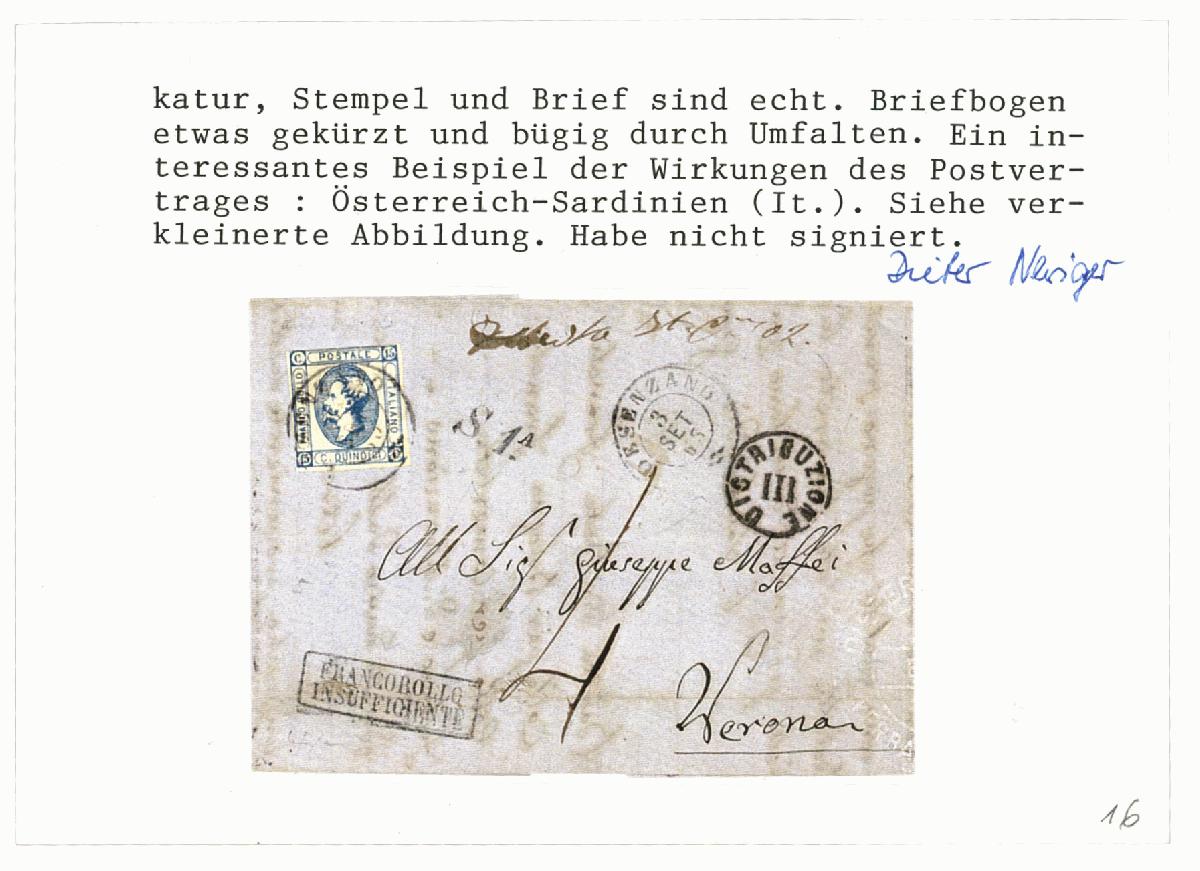 katur, Stempel und Brief sind echt. Briefbogen
etwas gekürzt und bügig durch Umfalten. Ein in-
teressantes Beispiel der Wirkungen des Postver-
trages : Österreich-Sardinien (It.). Siehe ver-
kleinerte Abbildung. Habe nicht signiert.
Dieter
02.
C POSTALE 15
FRANCO BOLLO
ITALIANO
15 C. QUINDICI
S. 1A
DESENZANO
3
SET
DISTRIBUZIONE
III
All Sig Giuseppe Maffei
4
FRANCOBOLLO
INSUFFICIENTE
Verona
16